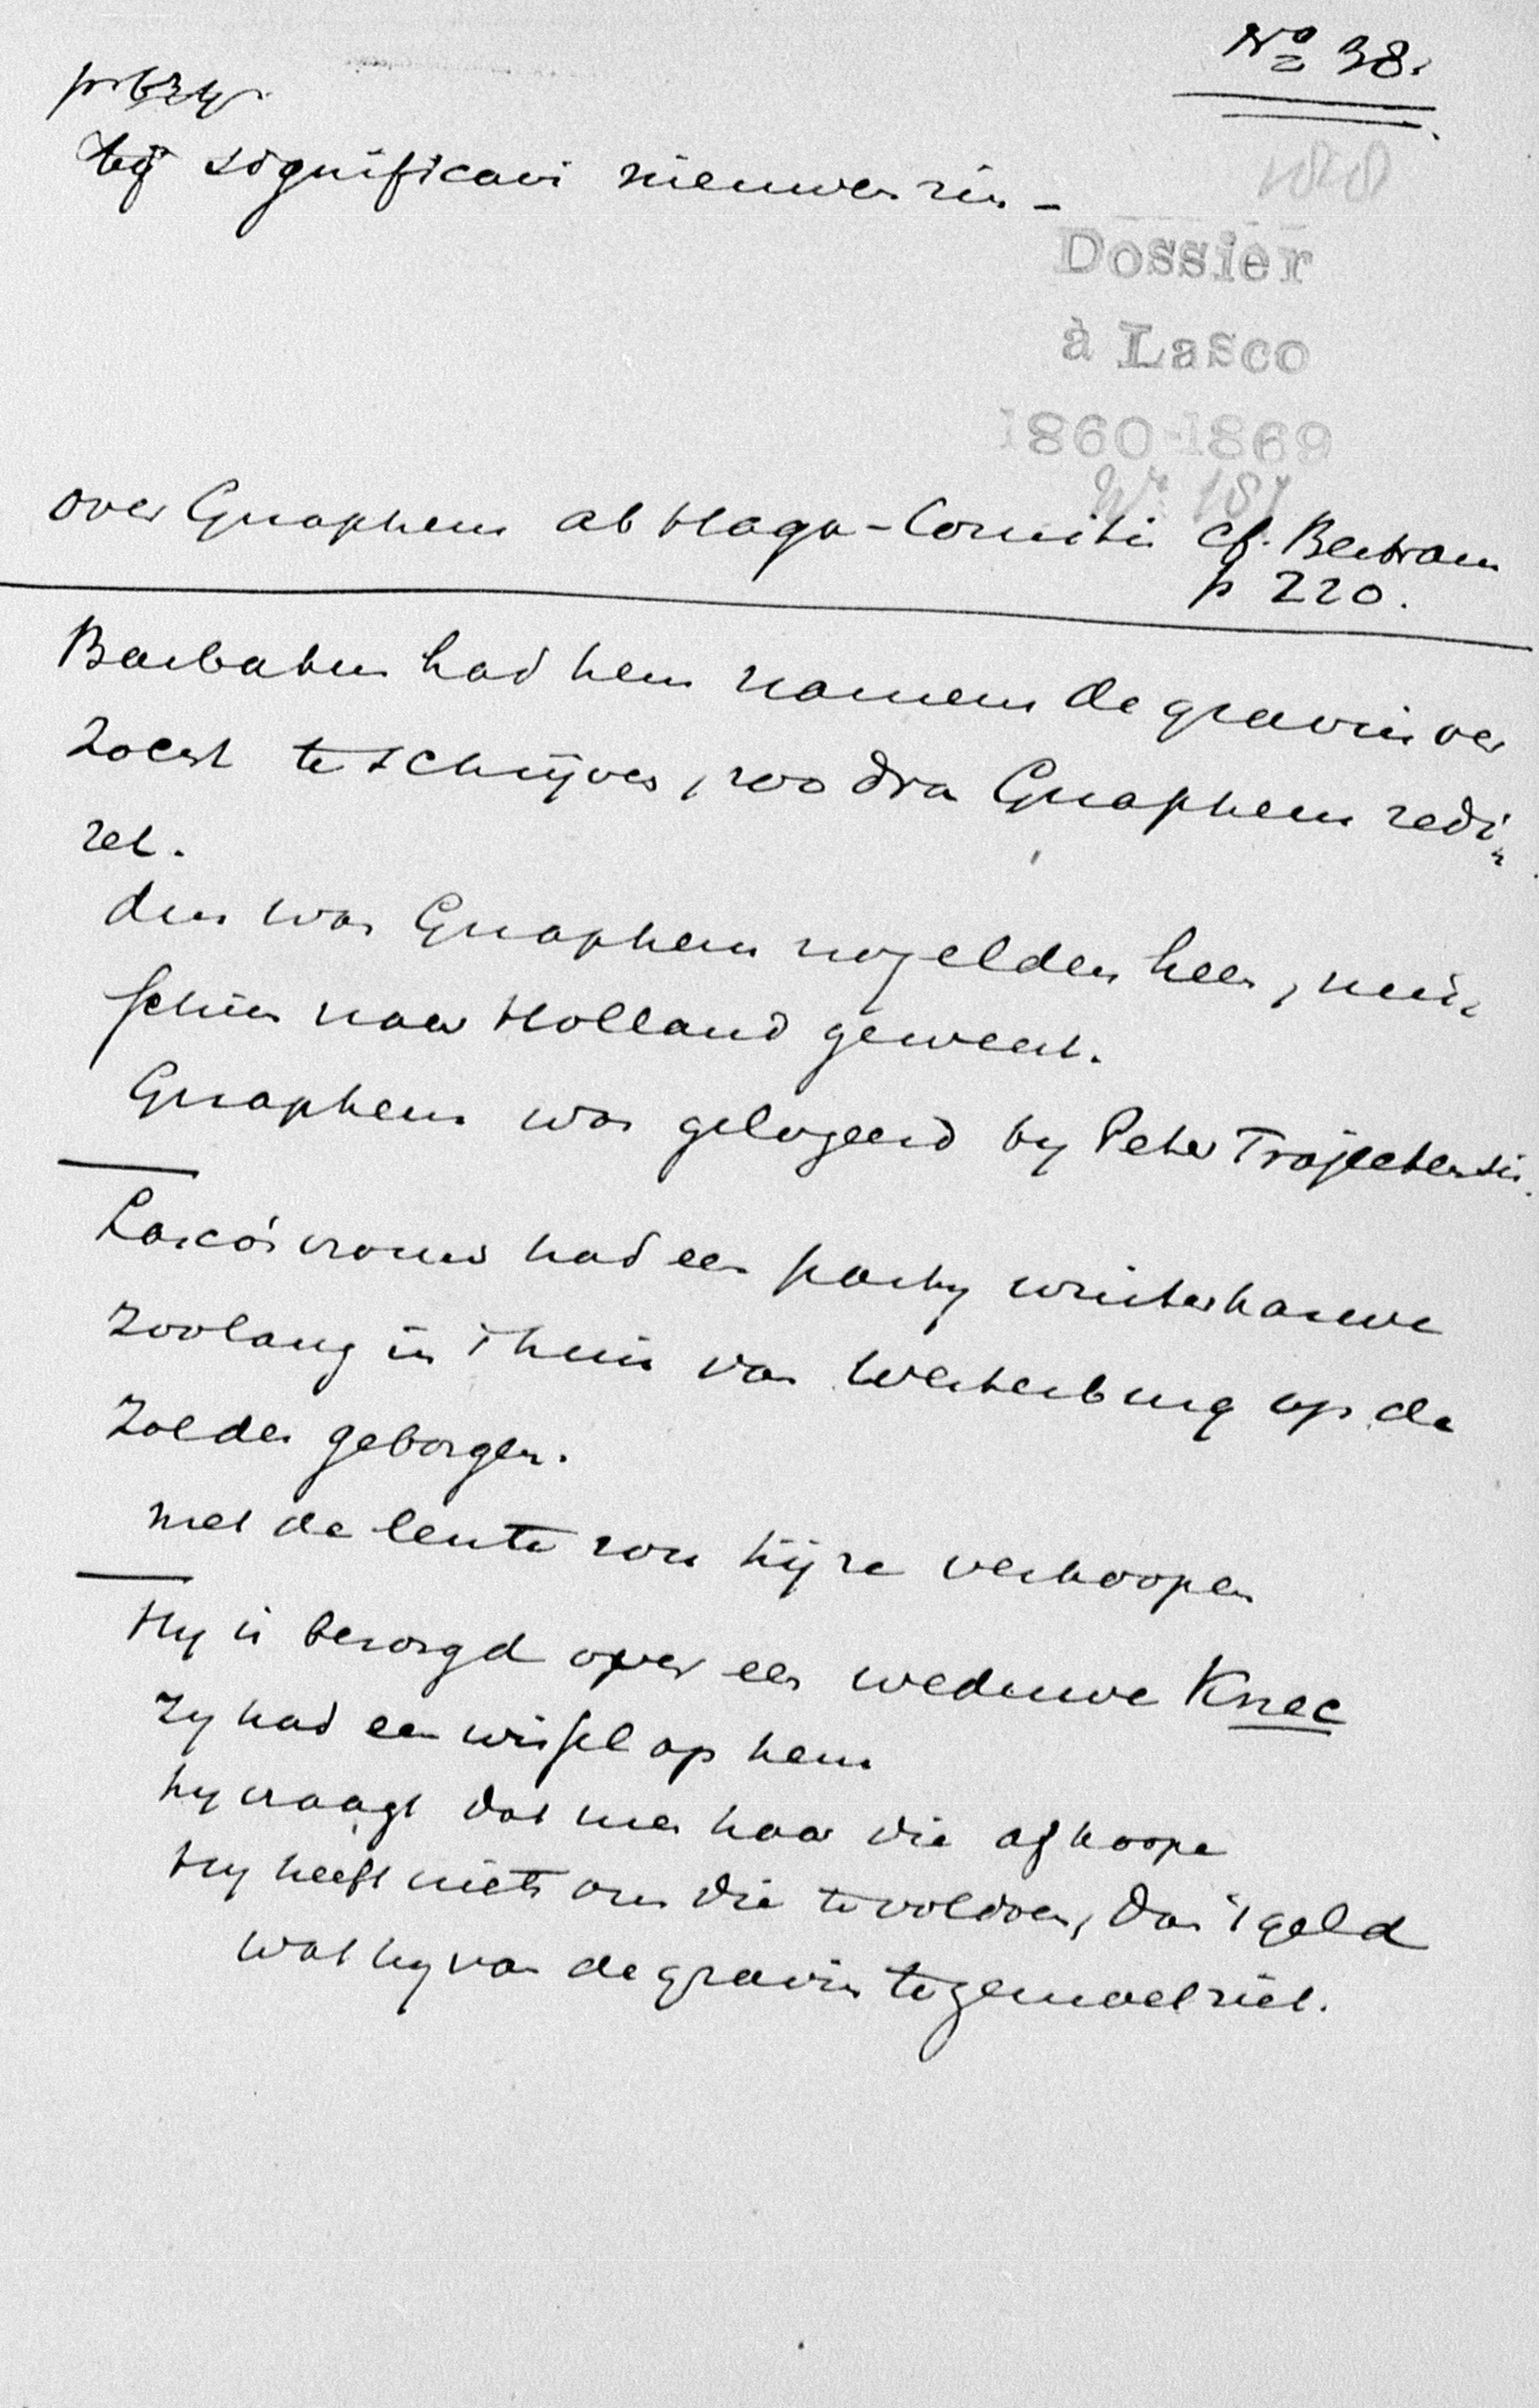 No 38.
p. 624.
bij significavi nieuwen zin –
Dossier
à Lasco
1860-1869
No 187
over Gnapheus ab Haga-Comitis cf. Bertram
p 220.
Barbatus had hem namens de gravin ver
zocht te schrijven, zoo dra Gnapheus redi„
ret.
dus was Gnapheus nog elders heen, mis„
schien naar Holland geweest.
Gnapheus was gelogeerd by Peter Trajectensis.
Lasco's vrouw had een party winterhaver
zoolang in 't huis van Westerburg op de
zolder geborgen.
met de lente zou hij ze verkoopen
Hy is bezorgd over een weduwe Knec
zy had een wissel op hem
hy vraagt dat men haar die afkoope
Hy heeft niets om die te voldoen, dan 't geld
wat hy van de gravin tegemoet ziet.